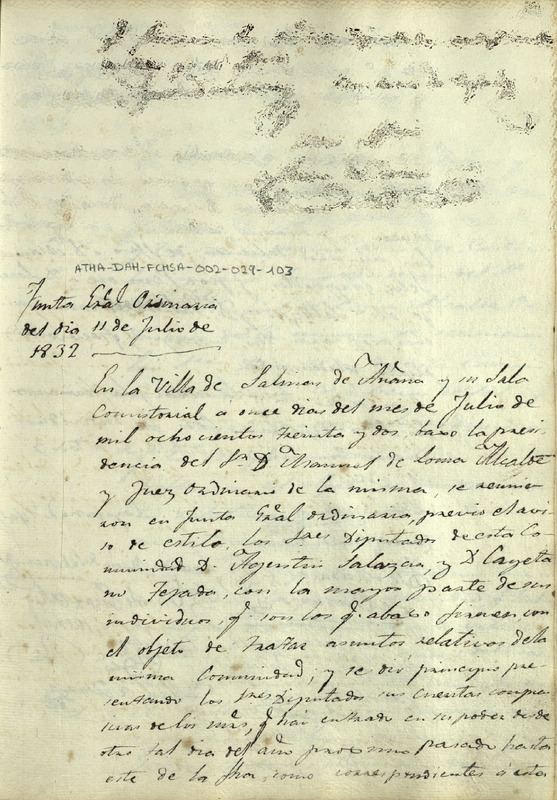 ATHA-DAH-FCHSA-002-029-103
Junta Gral Ordinaria
del dia 11 de Julio de
1832
En la Villa de Salinas de Añana y su Sala
Consistorial a once dias del mes de Julio de
mil ochocientos treinta y dos, baxo la presi-
dencia del Sr. Dn Manuel de Loma Alcalde
y Juez Ordinario de la misma, se reunie-
ron en Junta Gral ordinaria, previo el avi-
so de estilo, los Sres Diputados de esta Co-
munidad D. Agustin Salazar, y Dn Cayeta-
no Tejada, con la mayor parte de sus
individuos, q. son los q. abaxo firman, con
el objeto de tratar asuntos relativos de la
misma Comunidad, y se dio principio pre-
sentando los Sres Diputados sus cuentas
de los mrs, q. han entrado en su poder desde
otro tal dia del año proximo pasado hasta
este de la fha, como correspondientes á